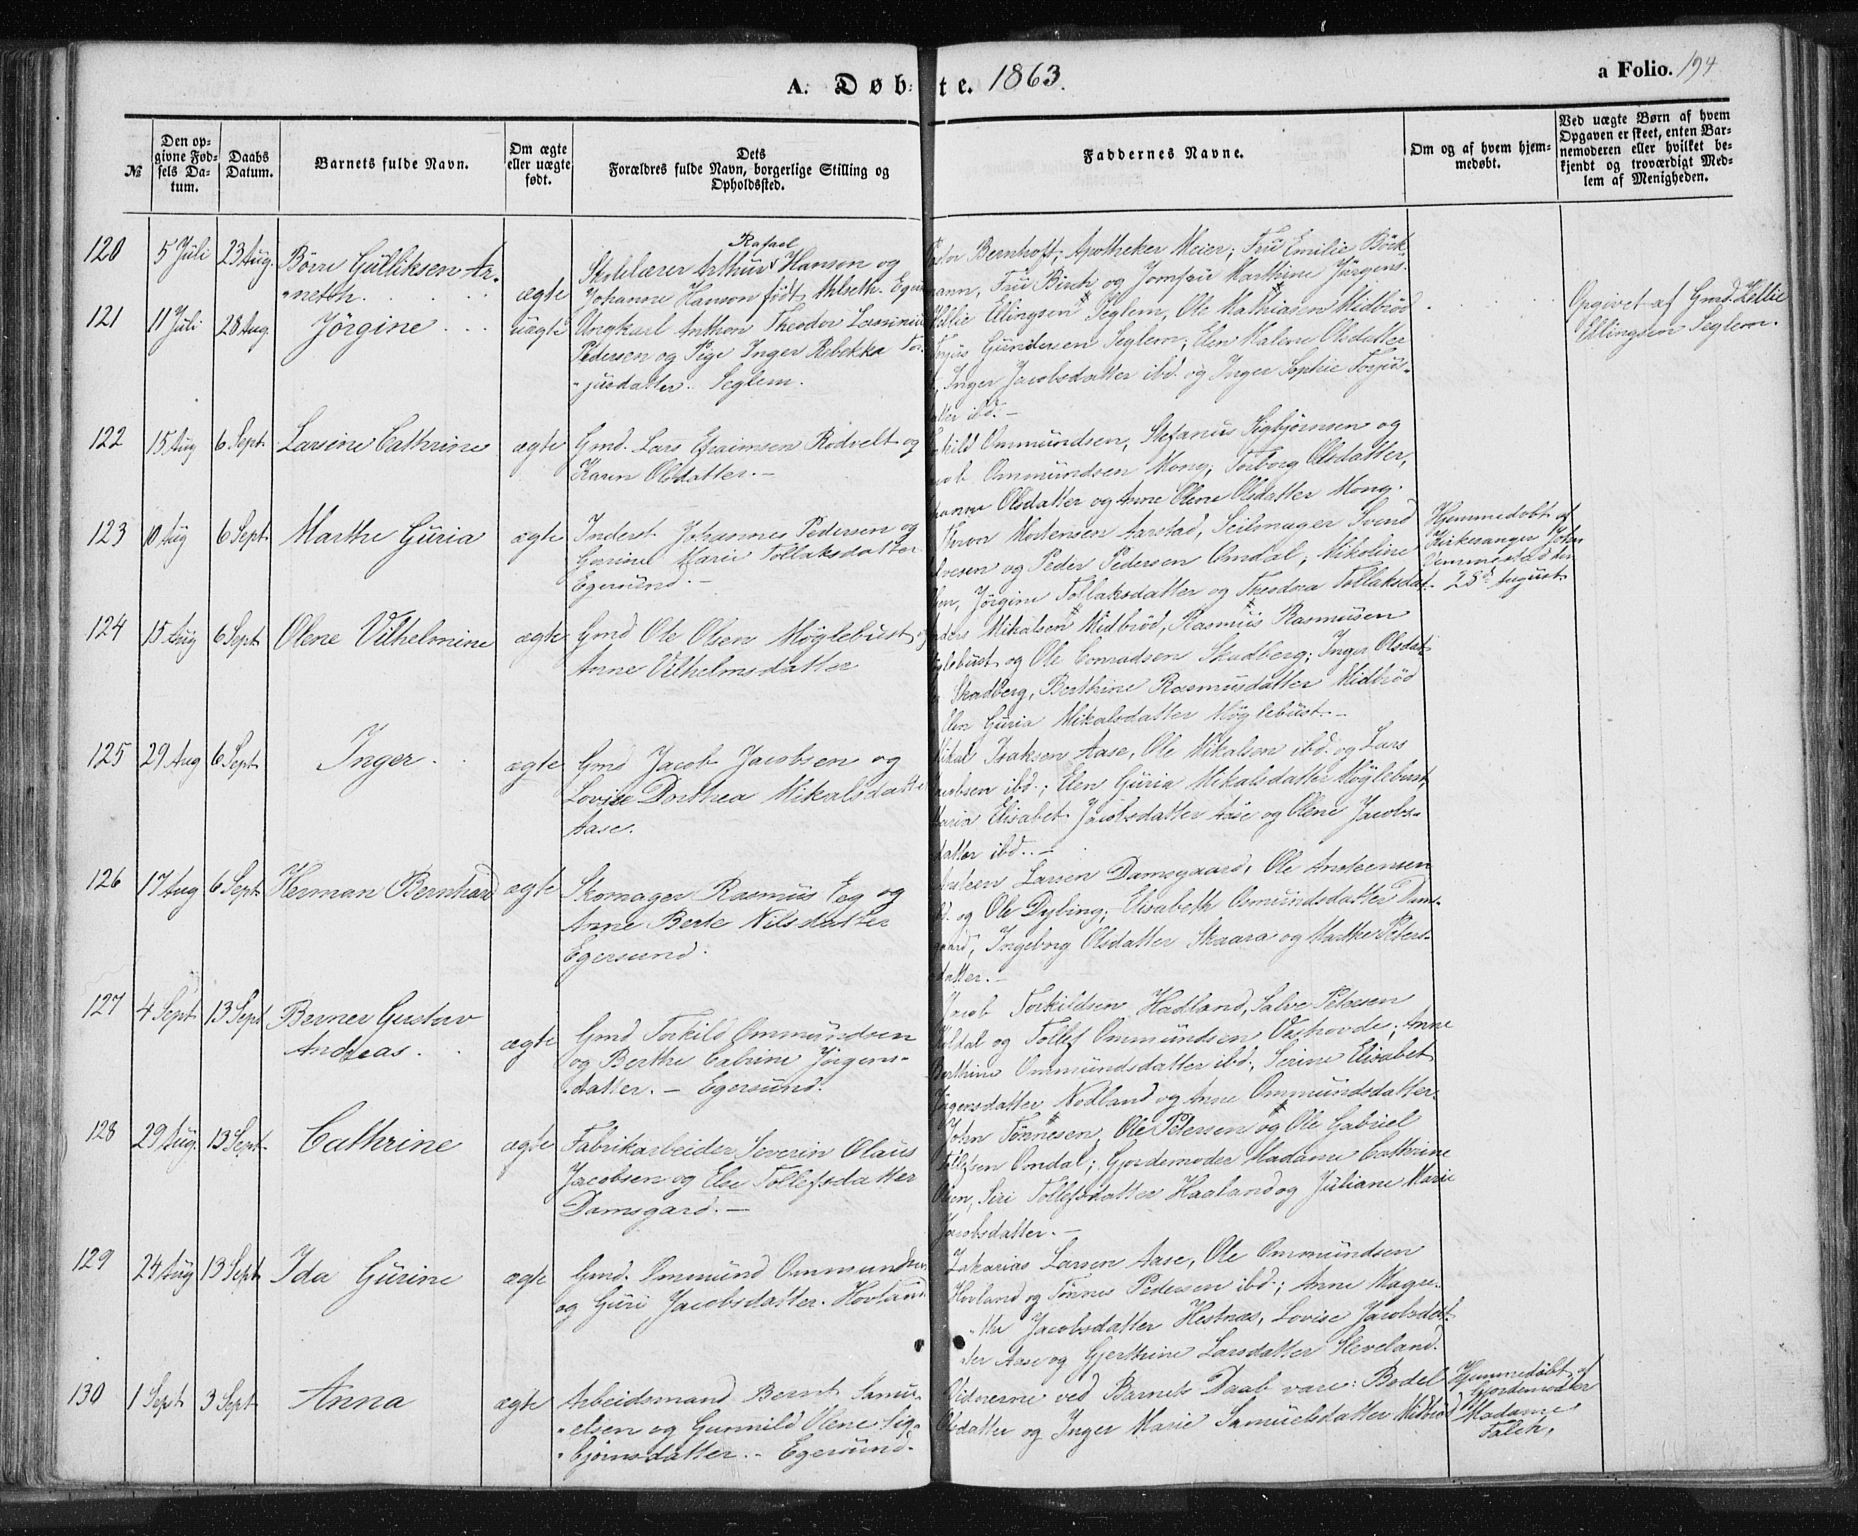 A. Døbte. 1863.
a Folio. 194
№
Den op-
givne Fød-
sels Da-
tum.
Daabs
Datum.
Barnets fulde Navn.
Om ægte
eller uægte
født.
Dets
Forældres fulde Navn, borgerlige Stilling og
Opholdssted.
Faddernes Navne.
Om og af hvem hjem-
medøbt.
Ved uægte Børn af hvem
Opgaven er skeet, enten Bar-
nemoderen eller hvilket be-
kjendt og troværdigt Med-
lem af Menigheden.
120
5 Juli
23 Aug.
Börre Gülliksen Ar-
neth.
ægte
Rafael
Skolelærer Arthur Hanson og
Johanne Hanson födt Milseth. Eger
Pastor Bernhoft; Apotheker Meier; Frü Emilie Böck
mann, Frü Birch og Jomfrü Marthine Jörgens.
121
11 Juli
28 Aug.
Jörgine
üægte
Ungkarl Anthon Theodor
Pedersen og Pige Inger Rebekka Tor-
jusdatter. Seglem.
Ellingsen Seglem, Ole Mathiasen Midbröd
Torjus Gundersen Seglem; Elen Malene Olsdatter
Inger Jacobsdatter ibd. og Inger Sophie Torjus-
datter ibd.-
Opgivet af Gmd.
Ellingsen Seglem.
122
15 Aug
6 Sept.
Larsine Cathrine
ægte
Gmd. Lars Efraimsen Rodvelt og
Karen Olsdatter.-
Torkild Ommündsen, Stefanus Sigbjörnsen og
Jacob Ommündsen Mong; Torborg Olsdatter,
Olsdatter og Anne Olene Olsdatter Mong.
123
10 Aug
6 Sept.
Marthe Güria
ægte
Inderst Johannes Pedersen og
Gurine Marie Tollaksdatter
Egersünd.-
Thron Mortensen Aarstad, Seilmager Svend
og Peder Pedersen Omdal; Nikoline
Jörgine Tollaksdatter og Theodora Tollaksdat.
Hjemmedöbt af
Kirkesanger John
Vemmestad den
23d August
124
15 Aug
6 Sept
Olene Vilhelmine
ægte
Gmd Ole Olsen Möglebüst og
Anne Vilhelmsdatter
Anders Mikalsen Midbröd, Rasmus Rasmusen
Möglebüst og Ole Conradsen Skadberg; Inger Olsdat
Skadberg, Berthine Rasmusdatter Midbröd
Elen Güria Mikalsdatter Möglebüst.-
125
29 Aug
6 Sept
Inger
ægte
Gmd Jacob Jacobsen og
Lovise Dorthea Mikalsdatter
Aase.
Mikal Isaksen Aase, Ole Mikalsen ibd. og Lars
Jacobsen ibd.; Elen Güria Mikalsdatter Möglebüst,
Maria Elisabet Jacobsdatter Aase og Olene Jacobs-
datter ibd.-
126
17 Aug
6 Sept
Herman Bernhard
ægte
Skomager Rasmus Eeg og
Anne Berte Nilsdatter
Egersund.
Larsen Damsgaard, Ole Anstensen
ibd. og Ole Dybing; Elisabeth Osmundsdatter Dam-
gaard, Ingeborg Olsdatter Skaara og Marthe Peters-
datter.-
127
4 Sept
13 Sept
Berner Gustav
Andreas.
ægte
Gmd Torkild Ommündsen
og Berthe Catrine Jörgens-
datter. - Egersund.
Jacob Torkildsen Hadland, Salve Petersen
og Tollef Ommündsen Vashovde; Anne
Berthine Ommündsdatter ibd. Serine Elisabet
Jörgensdatter Nodland og Anne Ommündsdatter
128
29 Aug.
13 Sept.
Cathrine
ægte
Fabrikarbeider Severin Olaus
Jacobsen og Else Tollefsdatter
Damsgard.-
John Tönnesen, Ole Petersen og Ole Gabriel
Tollefsen Omdal; Gjordemoder Madame Cathrine
Olsen, Siri Tollefsdatter Haaland og Juliane Marie
Jacobsdatter.-
129
24 Aug
13 Sept
Ida Gürine
ægte
Gmd. Ommünd Ommundsen
og Güri Jacobsdatter. Hovland
Zakarias Larsen Aase, Ole Ommündsen
Hovland og Tönnes Pedersen ibd.; Anne Magre-
the Jacobsdatter Hestnæs, Lovise Jacobsdat-
ter Aase og Gjerthine Larsdatter Sleveland.
130
1 Sept
3 Sept
Anna
ægte
Arbeidsmand Bernt Samu-
elsen og Gunnild Olene Sig-
björnsdatter. - Egersünd.
Vidnerne ved Barnets Daab vare: Bodel
Olsdatter og Inger Marie Samuelsdatter Midbröd
Hjemmedöbt af
Gjordemoder
Madame
Falch.